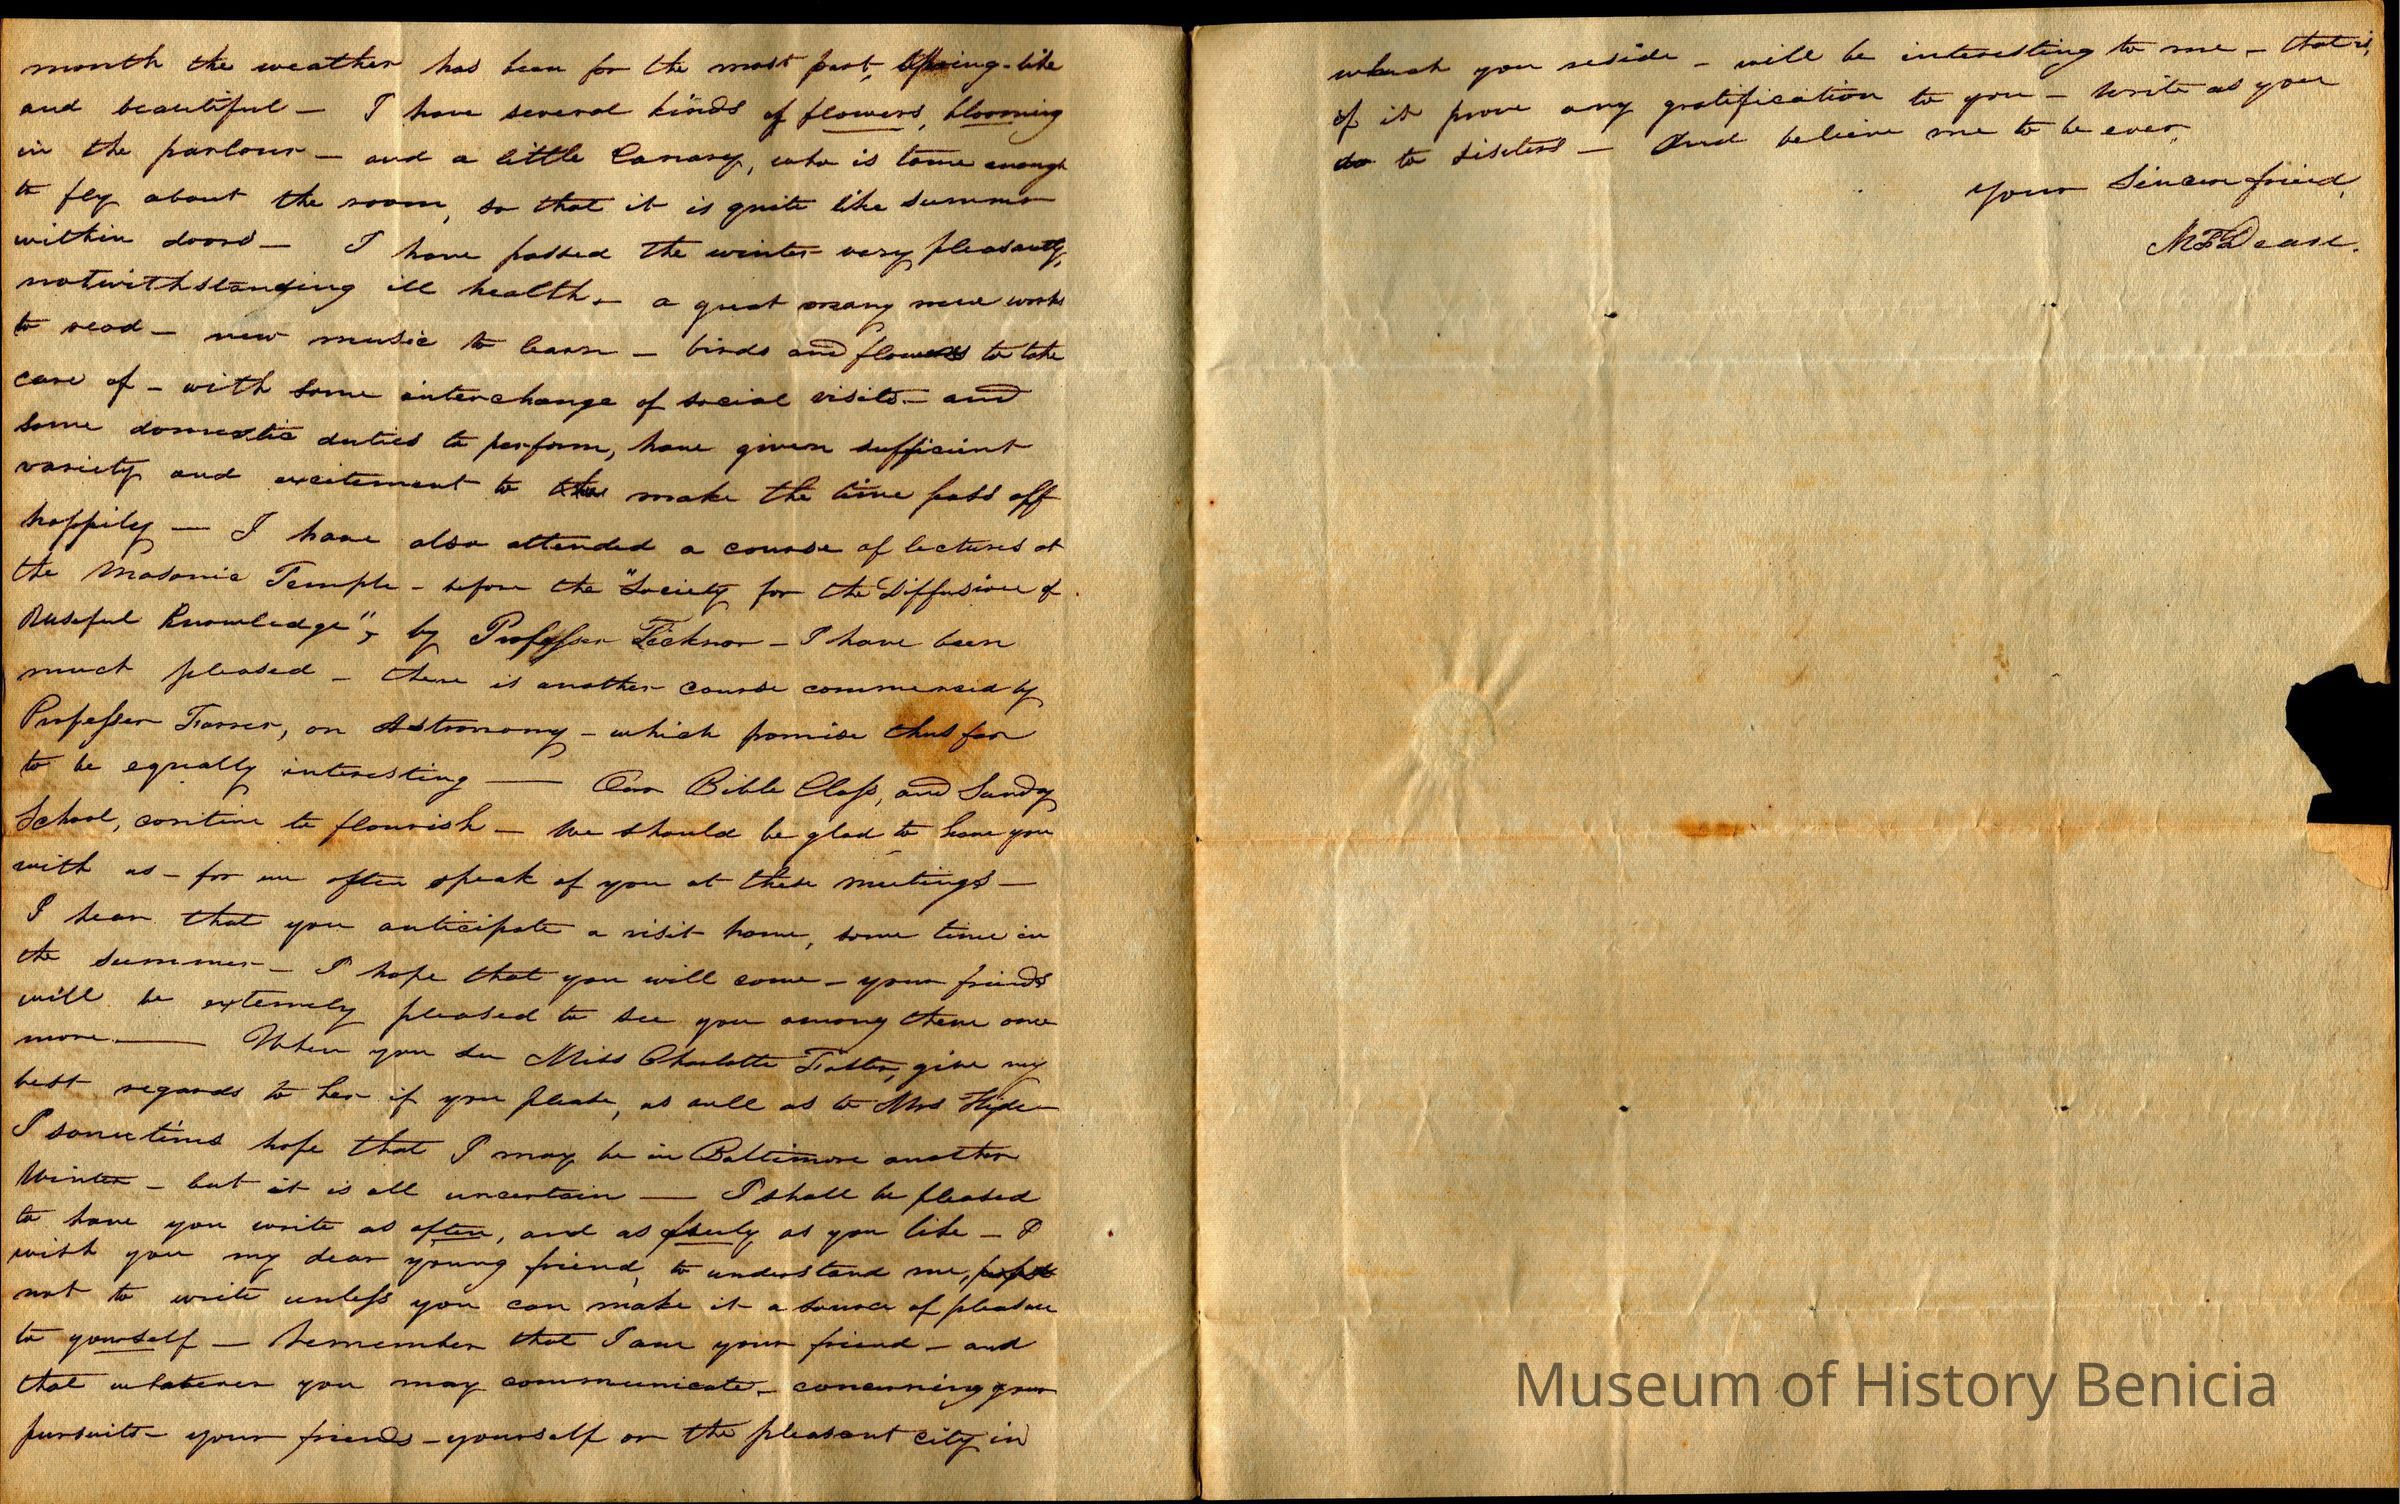 month the weather has been for the most part, spring-like
and beautiful – I have several kinds of flowers, blooming
in the parlour – and a little Canary, who is tame enough
to fly about the room, so that it is quite like summer
within doors – I have passed the winter very pleasantly,
notwithstanding ill health – a great many new works
to read – new music to learn – birds and flowers to take
care of – with some interchange of social visits – and
some domestic duties to perform, have given sufficient
variety and excitement to make the time pass off
happily — I have also attended a course of lectures at
the Masonic Temple – before the "Society for the Diffusion of
Useful Knowledge", by Professor Ticknor – I have been
much pleased – there is another course commenced by
Professor Farrer, on Astronomy – which promise thus far
to be equally interesting — Our Bible Class, and Sunday
School, contine to flourish – We should be glad to have you
with us – for we often speak of you at these meetings –
I hear that you anticipate a visit home, some time in
the summer – I hope that you will come – your friends
will be extemely pleased to see you among them once
more. — When you see Miss Charlotte Foster, give my
best regards to her if you please, as well as to Mrs Hyde –
I sometimes hope that I may be in Baltimore another
Winter – but it is all uncertain — I shall be pleased
to have you write as often, and as freely as you like – I
wish you my dear young friend, to understand me,
not to write unless you can make it a source of pleasure
to yourself – Remember that I am your friend – and
that whatever you may communicate – concerning your
pursuits – your friends – yourself or the pleasant city in
which you reside – will be interesting to me – that is,
if it prove any gratification to you – Write as you
do to Sisters – And believe me to be ever,
Your Sincere friend,
Museum of History Benicia